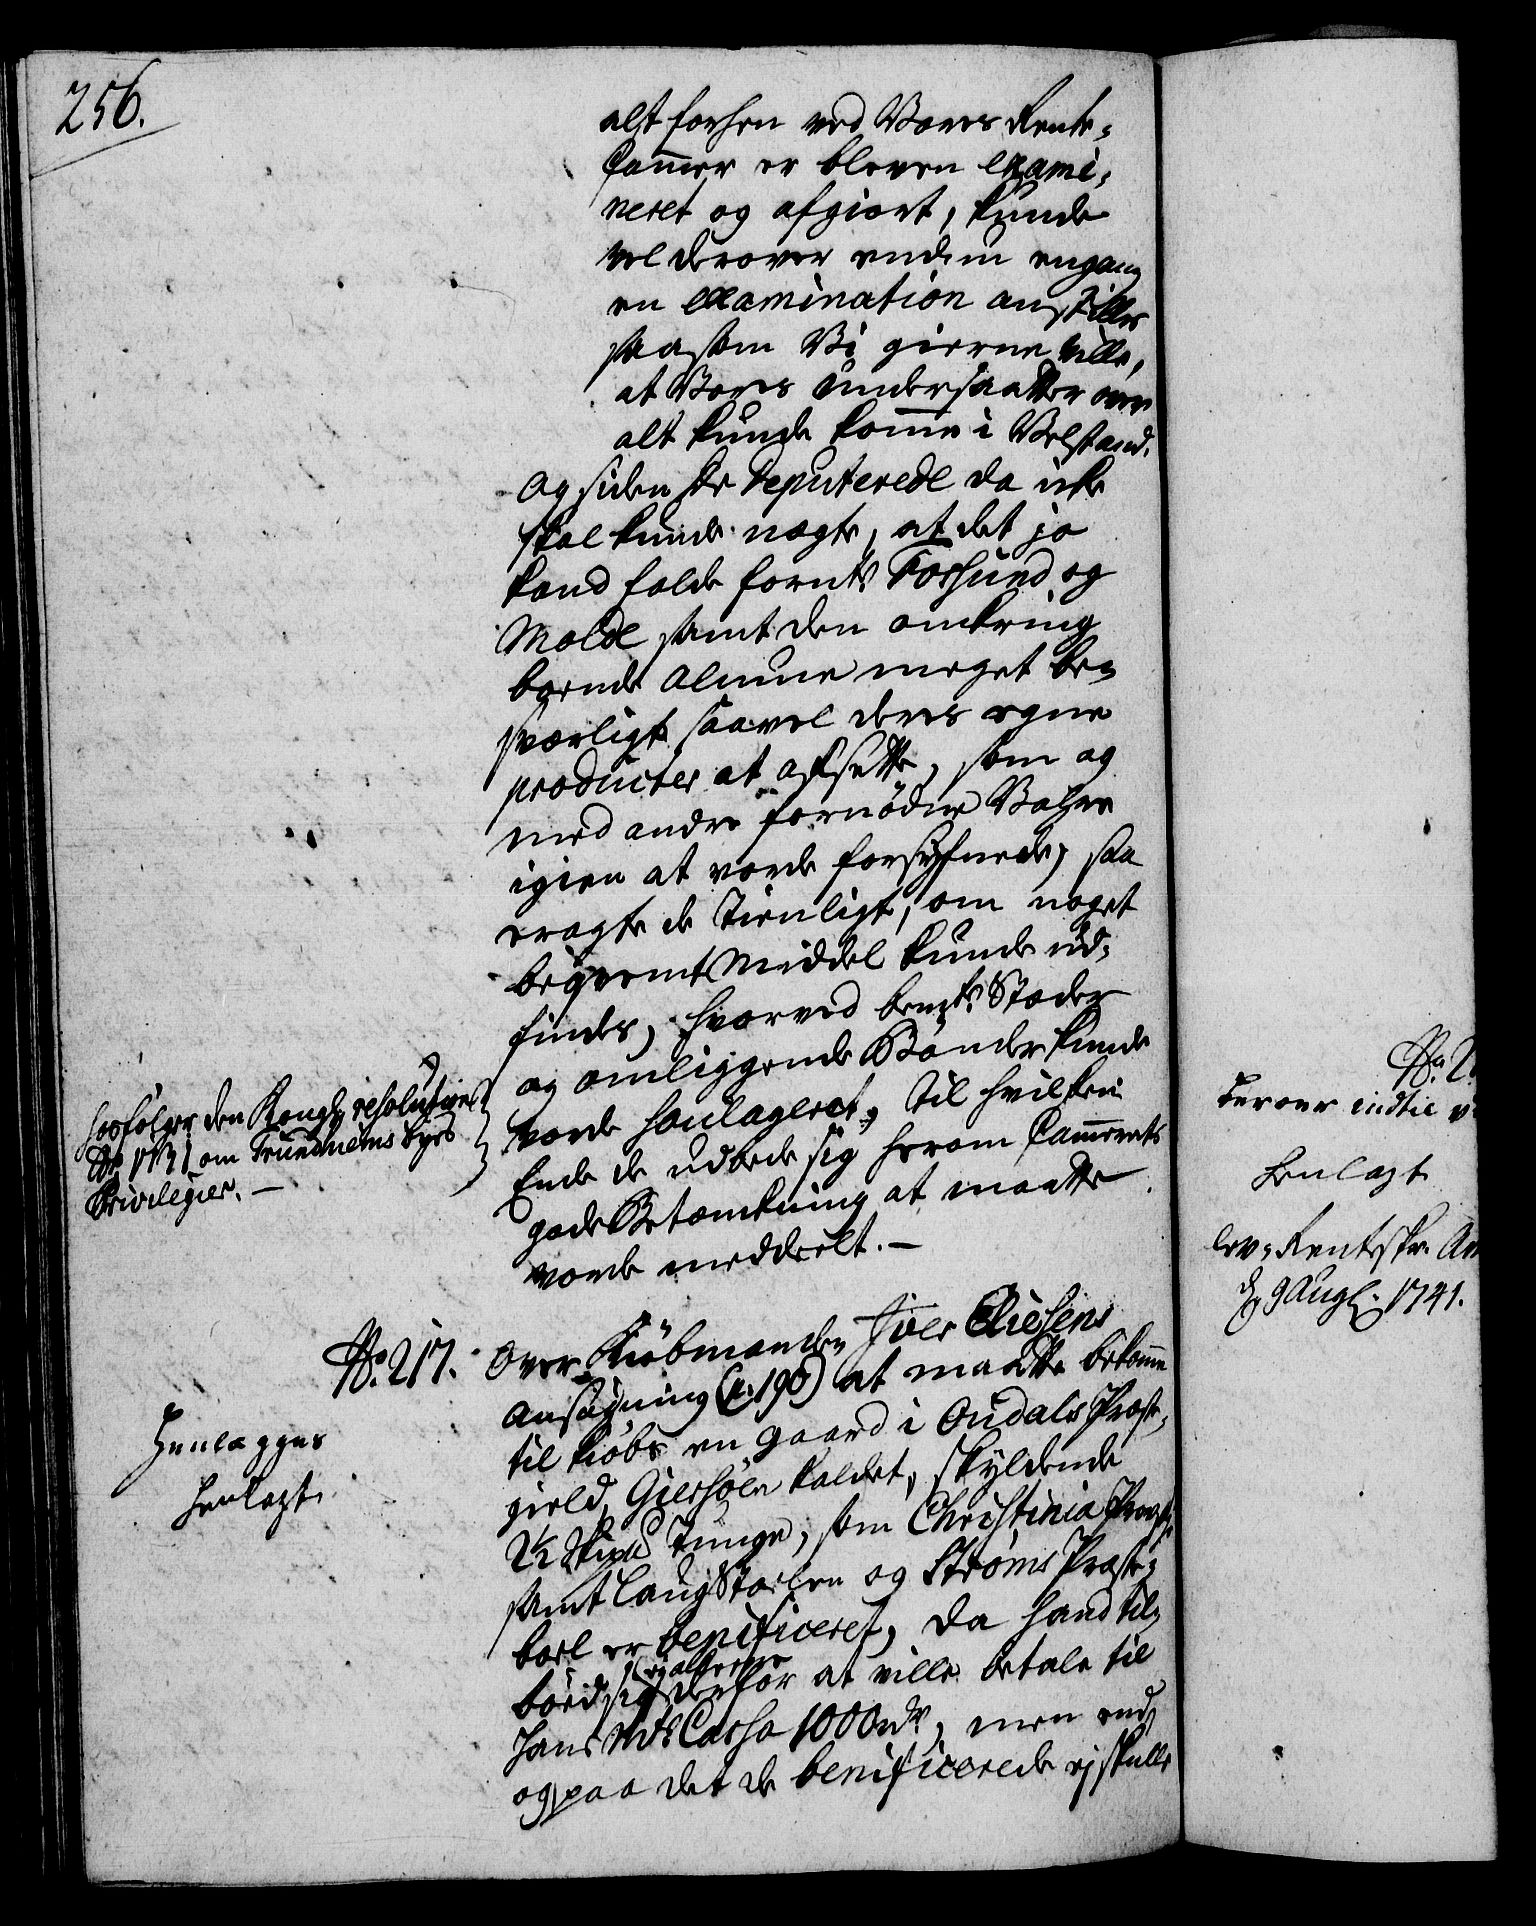 256.
alt forhen ved Vores Rente-
Cammer er bleven exami-
neret og afgiort, kunde
vel derover endnu engang
en examination anstilles
saasom Vi gierne ville,
at Vores Undersaatter over
alt kunde komme i Velstand.
Og siden de Deputerede da icke
skal kunde nægte, at det jo
kand falde fornte Fossund og
Molde samt den omkring
boende Almue meget be-
sværligt saavel deres egne
producter at afsette, som og
med andre fornödne Vahre
igien at vorde forsÿnede, saa
eragte de tienligt, om noget
beqvemt Middel kunde ud-
findes, hvorved bemte Stæder
og omliggende Bönder kunde
vorde soulageret, til hvilken
Ende de udbede sig herom Cammerets
gode Betænkning at maatte
vorde meddeelt. —
Hosfölger den Kongl. resolution
Ao 1731 om Trundhiems Byes
Privilegier. —
No. 217.
Over Kiöbmanden Iver Eliesens
Ansögning (p. 190) at maatte bekomme
til kiöbs en Gaard i Oudals Præste-
gield, Giersöen kaldet, skÿldende
2½ Skipd Tunge, som Christinia Provsti
samt Laugstoelen og Ströms Præste-
boel er benificeret, da hand til-
böed sig derfor at ville betale til
Hans Mts Cassa 1000 rdr, men end
og paa det de benificerede ej skulle
Henlægges
henlagt.
No. 2
derover indtil
henlagt
lev. Rentskr.
d. 9 Aug. 1741.